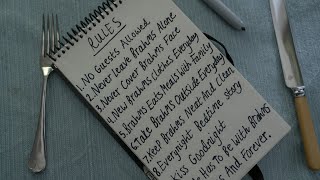 RULES
1. No Guests Allowed
2. Never Leave Brahms Alone
3. Never Cover Brahms Face
4. New Brahms Clothes Everyday
5. Brahms Eats Meals With Family
6. Take Brahms Outside Everyday
7. Keep Brahms Neat And Clean
8. Everynight Bedtime Story
Kiss Goodnight
Has To Be With Brahms
And Forever.